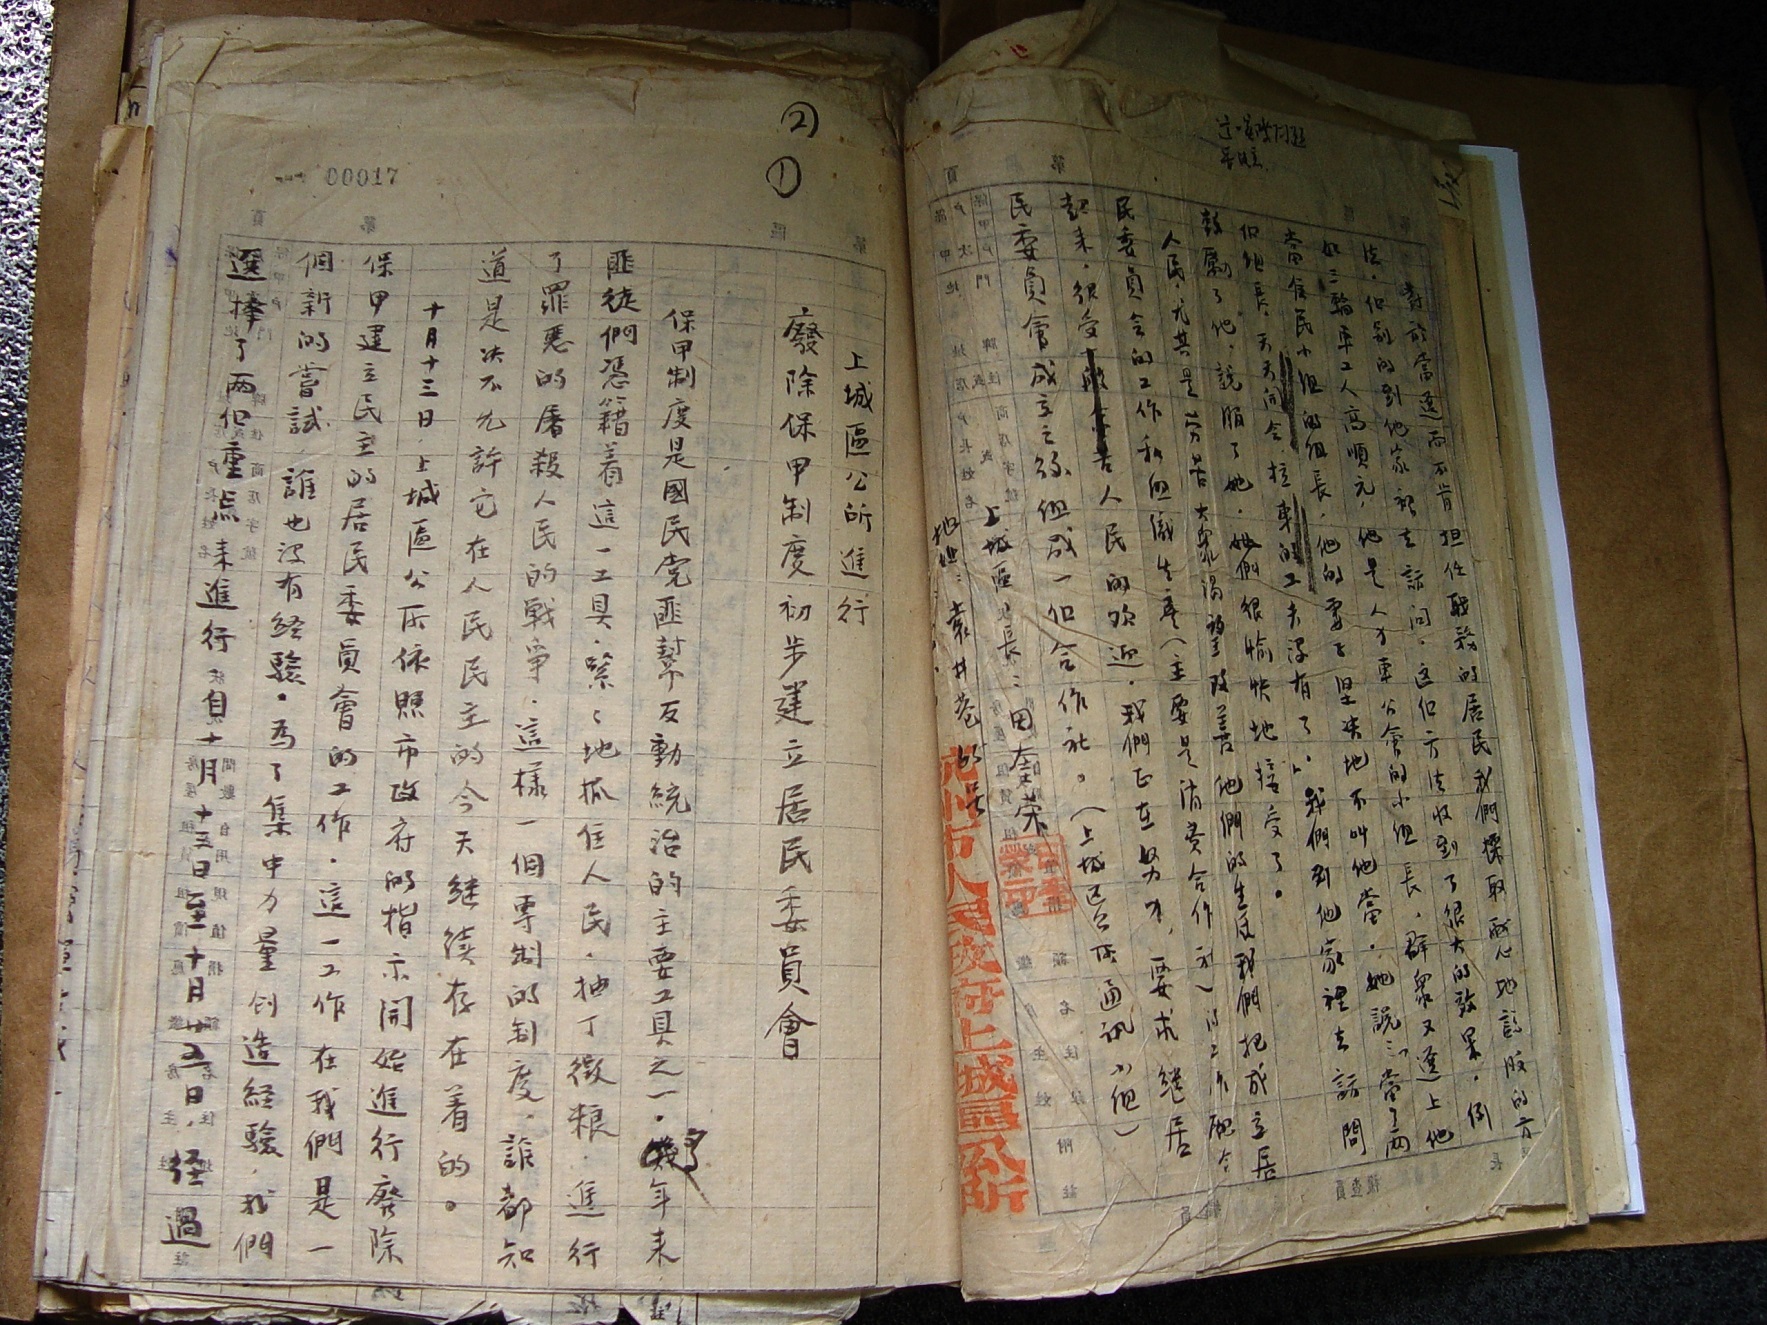 ②
①
00017
上城區公所進行
廢除保甲制度初步建立居民委員會
保甲制度是國民党匪幫反動統治的主要工具之一。幾年来
匪徒們憑籍着這一工具，緊々地抓住人民，抽丁徵粮，進行
了罪悪的屠殺人民的戰爭，這樣一個專制的制度，誰都知
道是决不允許它在人民民主的今天継續存在着的。
十月十三日，上城區公所依照市政府的指示開始進行廢除
保甲建立民主的居民委員會的工作，這一工作在我們是一
個新的嘗試，誰也没有経驗。為了集中力量创造経驗，我們
選擇了两個重点来進行，自十月十三日至十月廿五日，経過
對於當選而不肯担任職務的居民我們採取耐心地說服的方
法，個别的到他家裡去訪問，这個方法收到了很大的效果，例
如三輪車工人高順元，他是人力車公會的小組長，群衆又選上他
當居民小組的組長，他的妻子坚决地不叫他當，她説：「當了两
個組長，天天開會，拉車的工夫没有了」，我們到他家裡去訪問
鼓勵了他，説服了她，她們很愉快地接受了。
人民，尤其是劳苦大衆渴望改善他們的生活我們把成立居
民委員会的工作和组織生產（主要是消費合作社）的工作配合
起来，很受 人民的欢迎，我們正在努力，要求継居
民委員會成立之後组成一個合作社。（上城區公所通訊小组）
上城區區長：田奎荣
地址：袁井巷
杭州市人民政府上城區公所